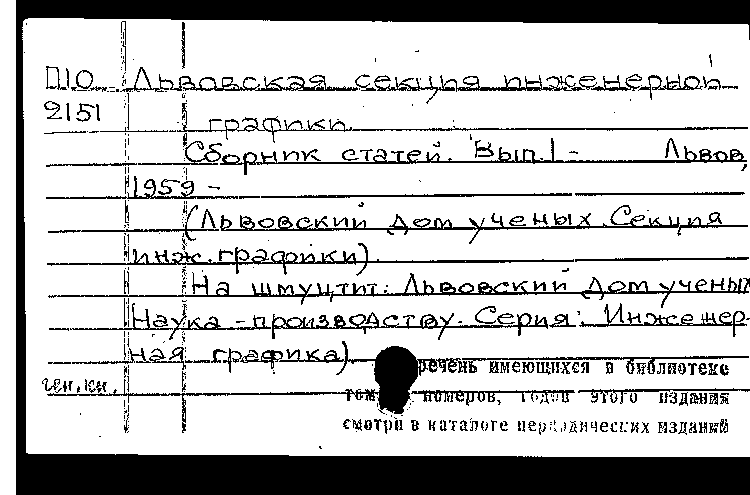 П10 Львовская секция инженерной
2151 графики.
Сборник статей. Вып.1- Львов,
1959 -
(Львовский Дом ученых. Секция
инж. графики).
На шмуцтит: Львовский Дом ученых
Наука - производству. Серия: Инженер-
ная графика).
речень имеющихся в библиотеке
ген.кн. том номеров, годов этого издания
смотри в каталоге периодических изданий